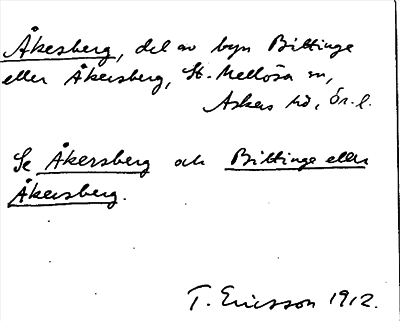 Åkesberg, del av byn Biltinge
eller Åkersberg, St. Mellösa sn,
Askers hd, Ör. l.
Se Åkersberg och Biltinge eller
Åkersberg.
T. Ericsson 1912.